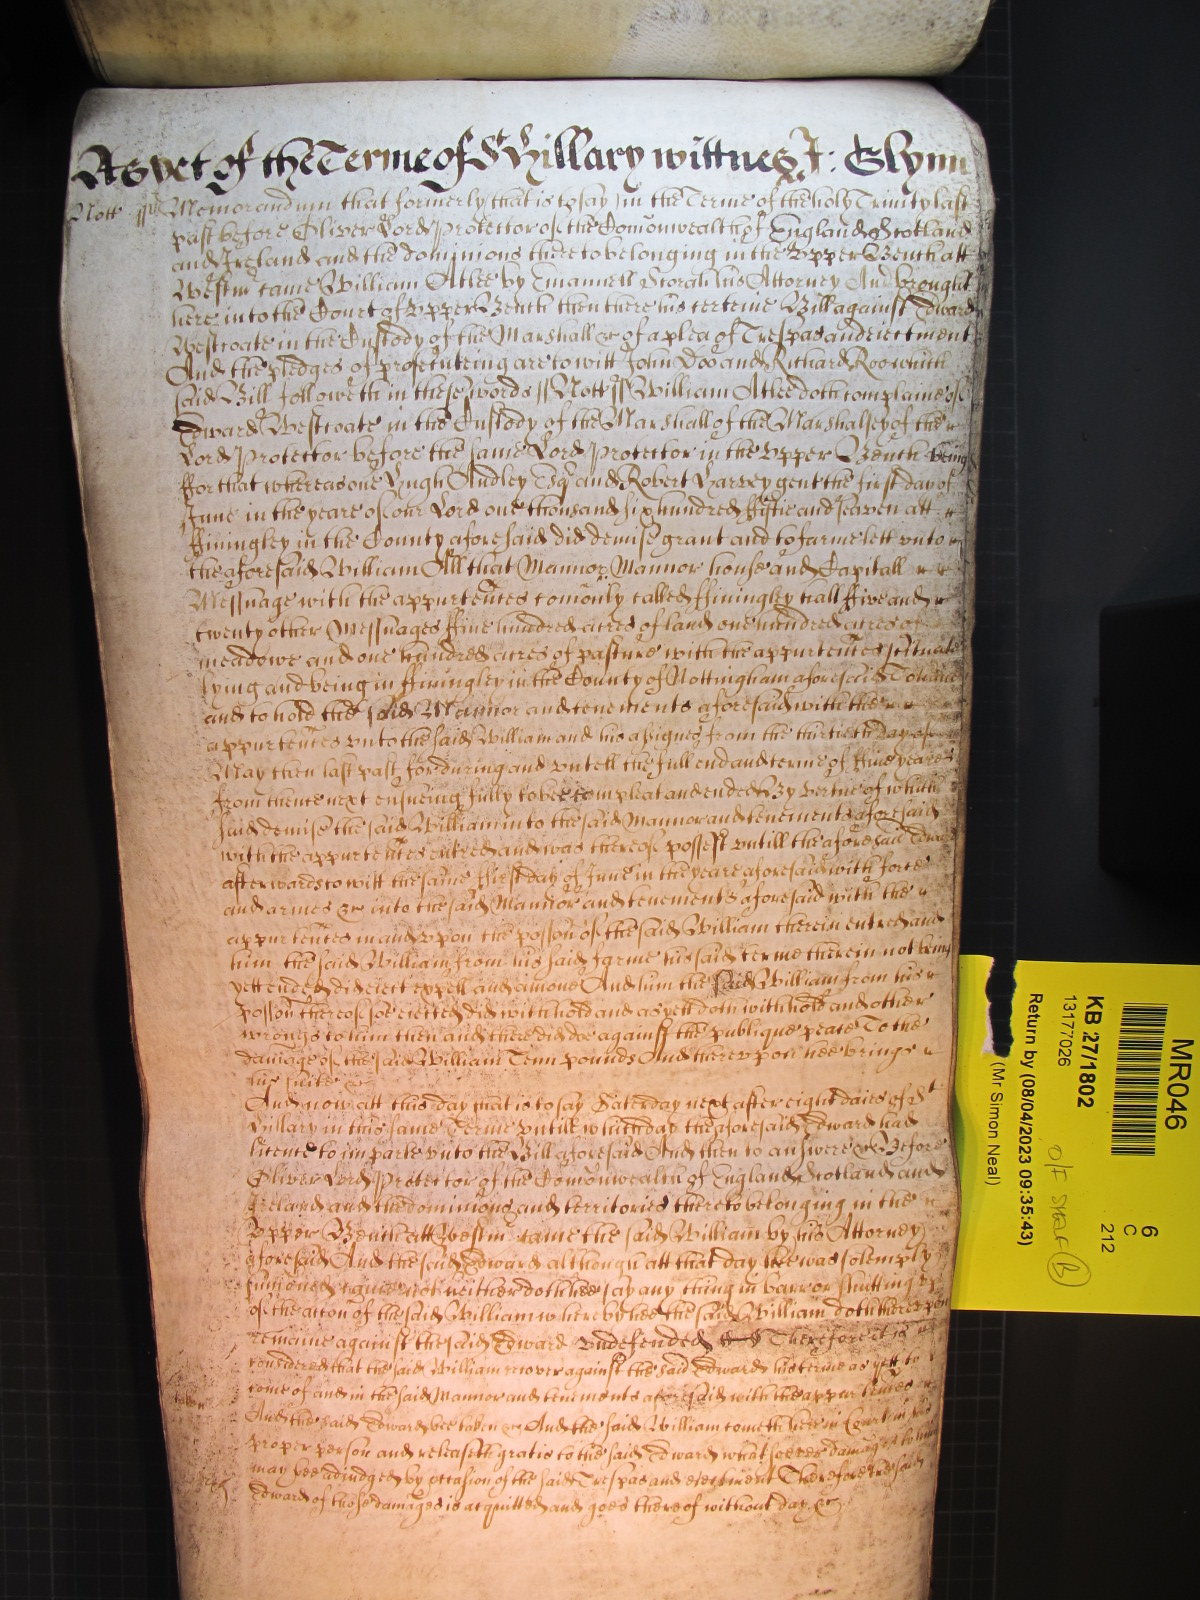 As yet of the Terme of St Hillary wittnes J: Glynn
Nott ss Memorandum that formerly that is to say in the Terme of the holy Trinity last
past before Oliver Lord Protector of the Comonwealth of England Scotland
and Ireland and the dominions thereto belonging in the Upper Bench att
Westmr came William Atlee by Emanuell his Attorney And brought
here into the Court of Upper Bench then there his certeine Bill against Edward
Westcoate in the Custody of the Marshall &c of a plea of Trespas and eiectment
And the pledges of prosecuteing are to witt John Doo and Richard Roo which
said Bill followeth in these words ss Nott ss William Atlee doth complaine of
Edward Westcoate in the Custody of the Marshall of the Marshalsey of the
Lord Protector before the same Lord Protector in the Upper Bench being
ffor that whereas one Hugh Audley Esqr and Robert Harvey gent the first day of
June in the yeare of our Lord one thousand six hundred fiftie and seaven att
ffiningley in the County aforesaid did demise grant and to farme lett unto
the aforesaid William All that Mannor Mannor house and Capitall
Messuage with the appurtenntes comonly called ffiningley hall ffive and
twenty other Messuages ffive hundred acres of land one hundred acres of
meadowe and one hundred acres of pasture with the appurtenntes scituate
lying and being in ffiningley in the County of Nottingham aforesaid To have
and to hold the said Mannor and tenements aforesaid with the
appurtenntes unto the said William and his assignes from the thirtieth day of
May then last past for during and untell the full end and terme of ffive yeares
from thence next ensueing fully to bee compleat and ended By vertue of which
said demise the said William into the said Mannor and tenements aforesaid
with the appurtenntes entred and was thereof possest untill the aforesaid Edward
afterwards to witt the same first day of June in the yeare aforesaid with force
and armes &c into the said Mannor and tenements aforesaid with the
appurtenntes in and uppon the posson of the said William therein entred and
him the said William from his said farme his said terme therein not being
yett ended did eiect expell and amove And him the said William from his
posson thereof soe eiected did withhold and as yett doth withhold and other
wrongs to him then and there did doe against the publique peace To the
damage of the said William Tenn pounds And thereuppon hee brings
his suite &c
And now att this day that is to say Saturday next after eight daies of St
Hillary in this same Terme untill which day the aforesaid Edward had
licence to imparle unto the Bill aforesaid And then to answere &c Before
Oliver Lord Protector of the Comonwealth of England Scotland and
Ireland and the dominions and territories thereto belonging in the
Upper Bench att Westmr came the said William by his Attorney
aforesaid And the said Edward although att that day hee was solemply
sumoned came not neither doth hee say any thing in barr or
of the accon of the said William whereby hee the said William doth thereuppon
remaine against the said Edward undefended Therefore it is
considered that the said William recover against the said Edward his terme as yett to
come of and in the said Mannor and tenements aforesaid with the appurtenntes
And the said Edward bee taken &c And the said William cometh here in Court in his
proper person and releaseth gratis to the said Edward what soever damages to him
may bee adiudged by occasion of the said Trespas and eiectment Therefore the said
Edward of those damages is acquitted and goes thereof without day &c
MR046
KB 27/1802
13177026
Return by (08/04/2023 09:35:43)
(Mr Simon Neal)
6
C
212